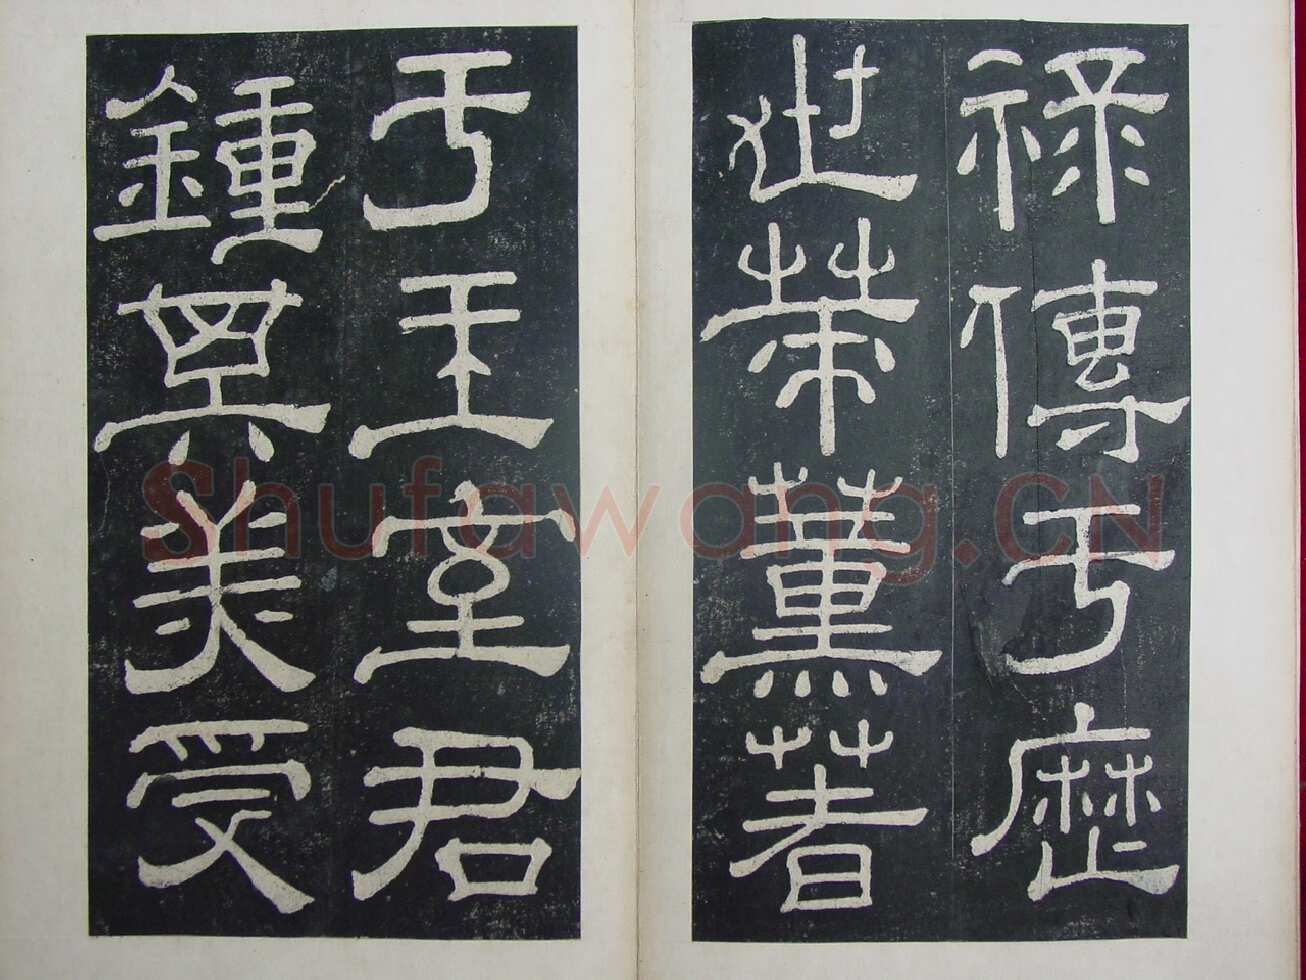 祿傳于歷
世策薰著
于王室君
鍾其美受
Shufawang.CN